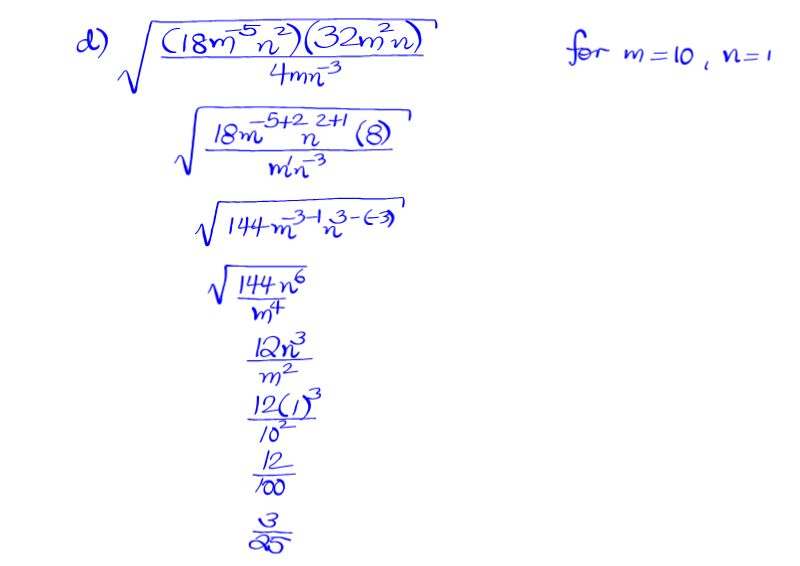 d) √((18m⁻⁵n²)(32m²n) / 4mn⁻³) for m = 10, n = 1
√(18m⁻⁵⁺²n²⁺¹(8) / m¹n⁻³)
√(144m⁻³⁻¹n³⁻⁽⁻³⁾)
√(144n⁶ / m⁴)
12n³ / m²
12(1)³ / 10²
12 / 100
3 / 25